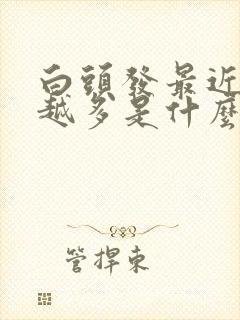 白頭發最近
越多是什麼
管捍東